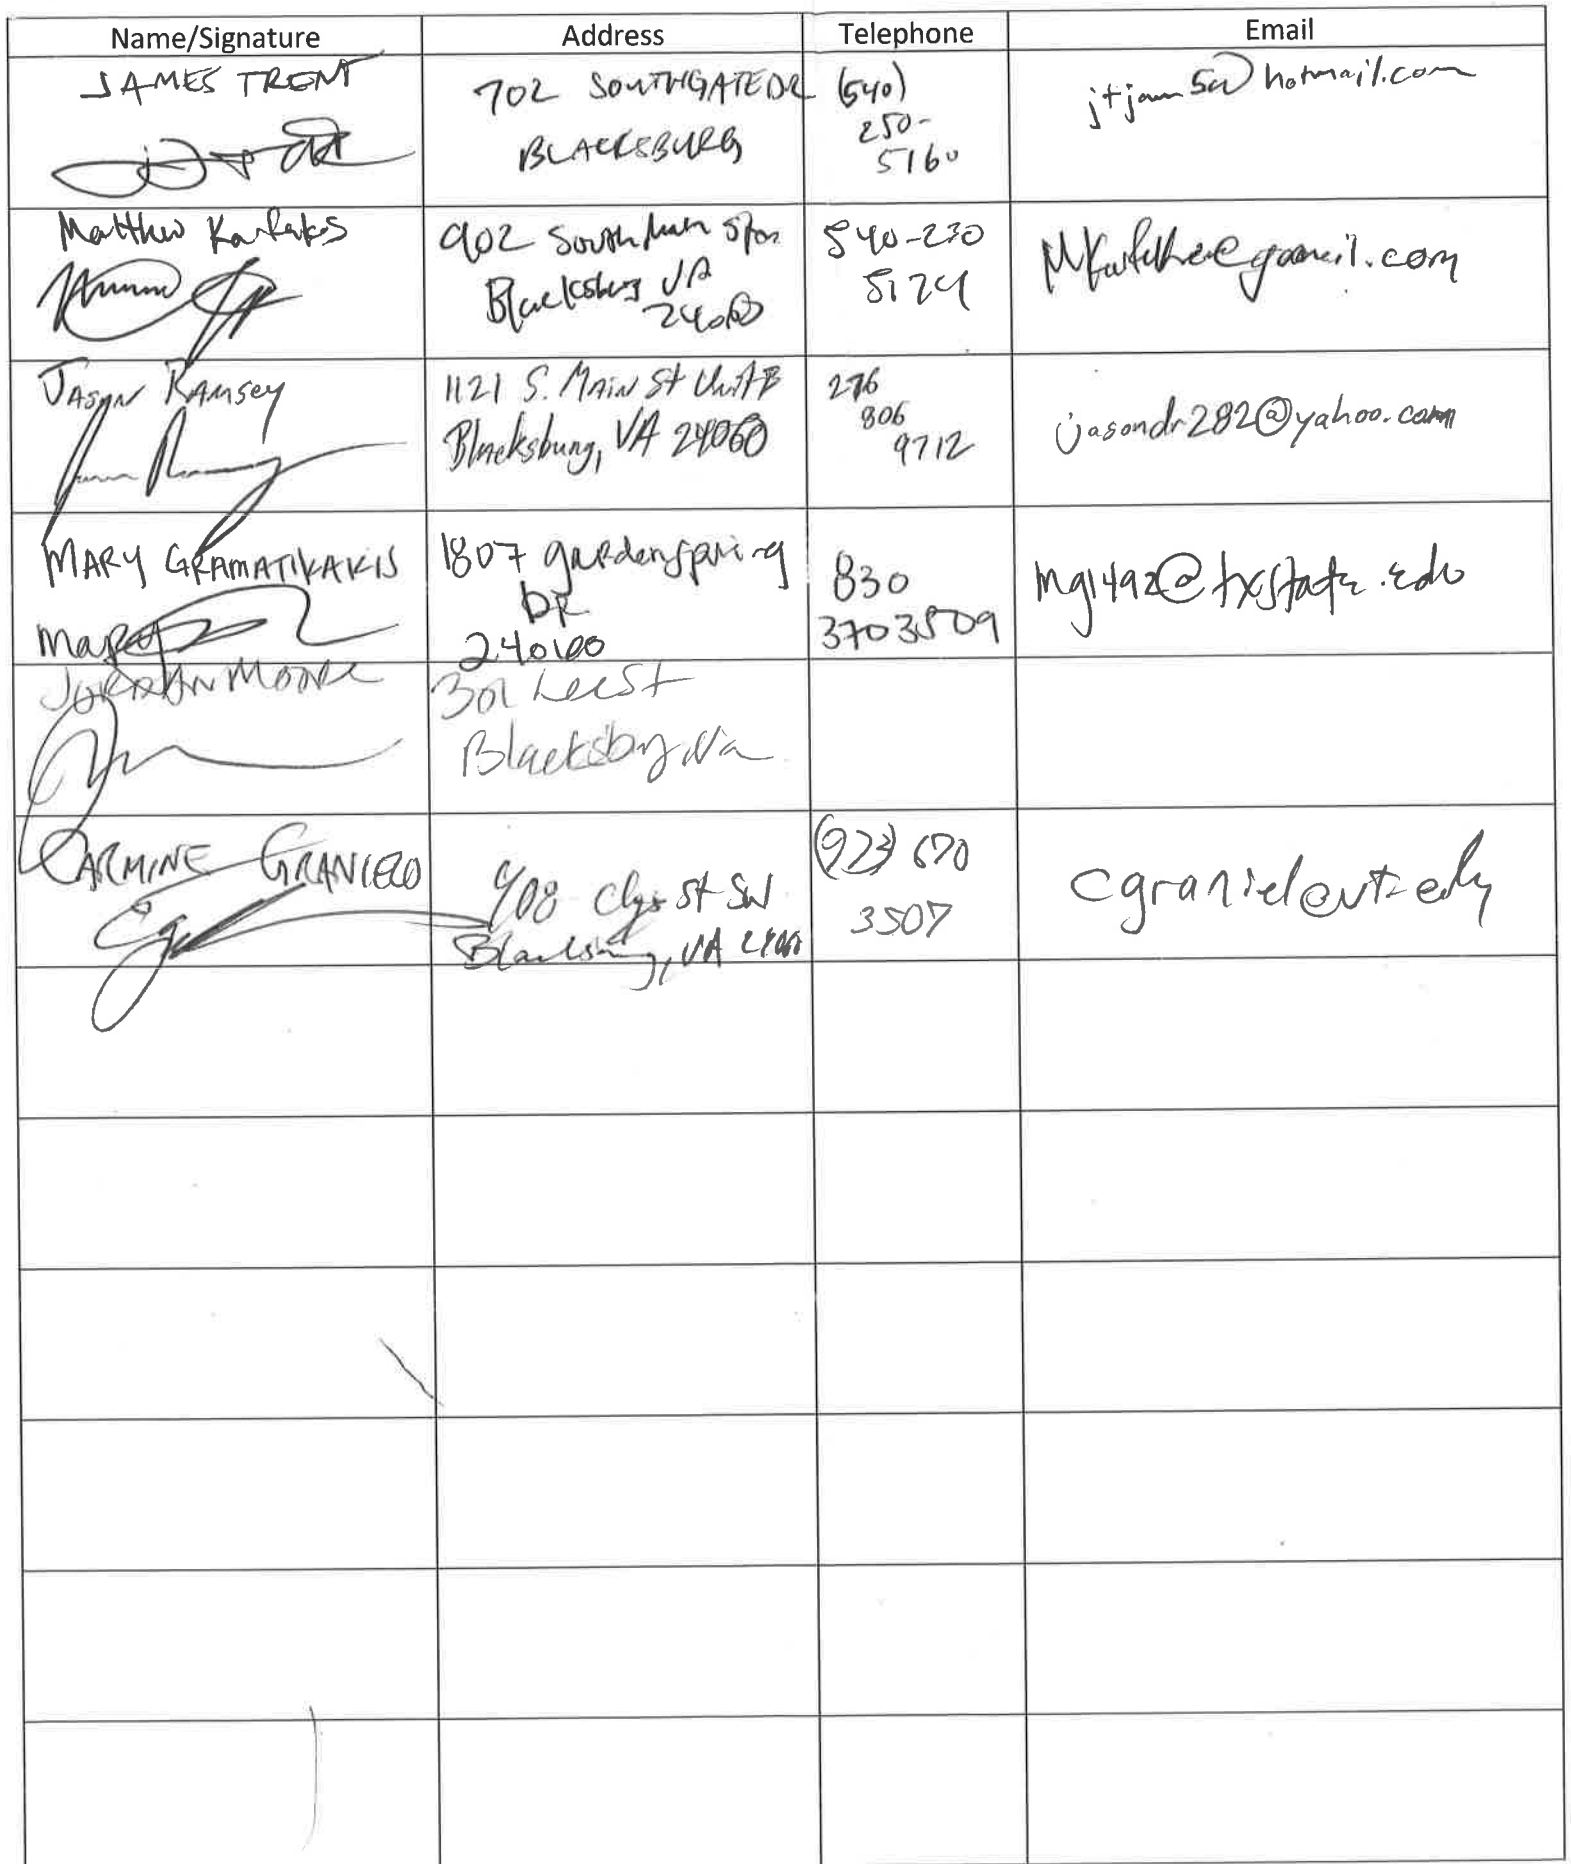 Name/Signature Address Telephone Email
JAMES TRENT
702 SOUTHGATE DR
BLACKSBURG
(540)
250-
5160
hotmail.com
Matthew
902 South Main
Blacksburg VA
24060
540-230
5124
@gmail.com
JASON RAMSEY
1121 S. MAIN St Unit B
Blacksburg, VA 24060
276
806
9712
jasondr282@yahoo.com
MARY GRAMATIKAKIS
Mary
1807 gardenspring
DR
24060
830
3703509
mg1492@txstate.edu
JORDAN MOORE
301 Lee St
Blacksburg Va
CARMINE GRANIERO
408 Clay St SW
Blacksburg, VA 24060
(973) 670
3507
cgraniel@vt.edu